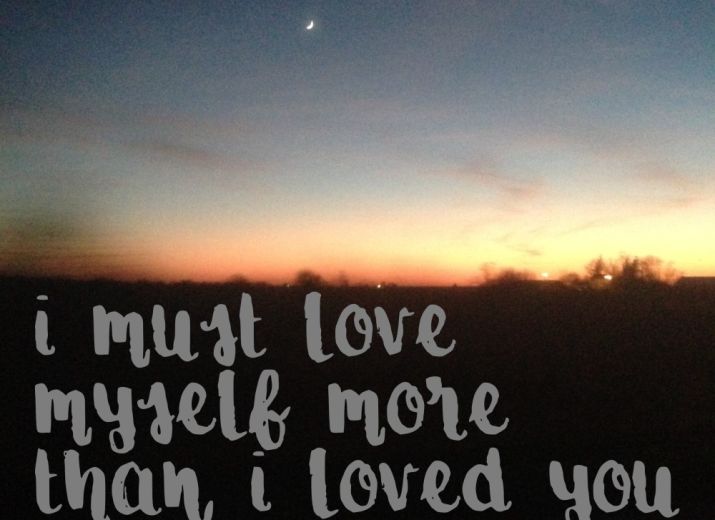 i must love
myself more
than i loved you